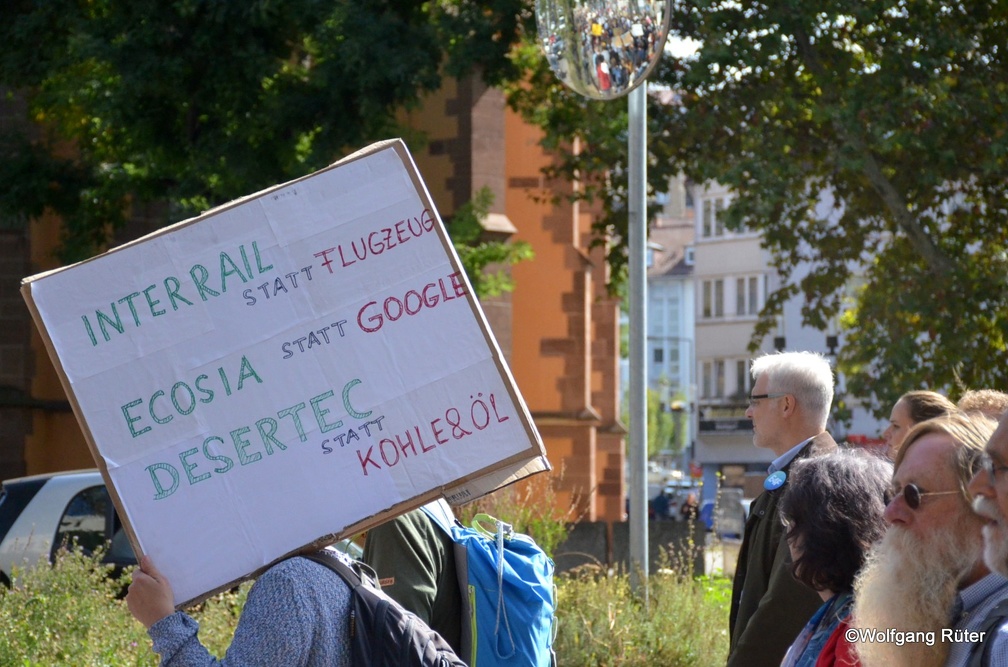 INTERRAIL STATT FLUGZEUG
ECOSIA STATT GOOGLE
DESERTEC STATT KOHLE&ÖL
©Wolfgang Rüter